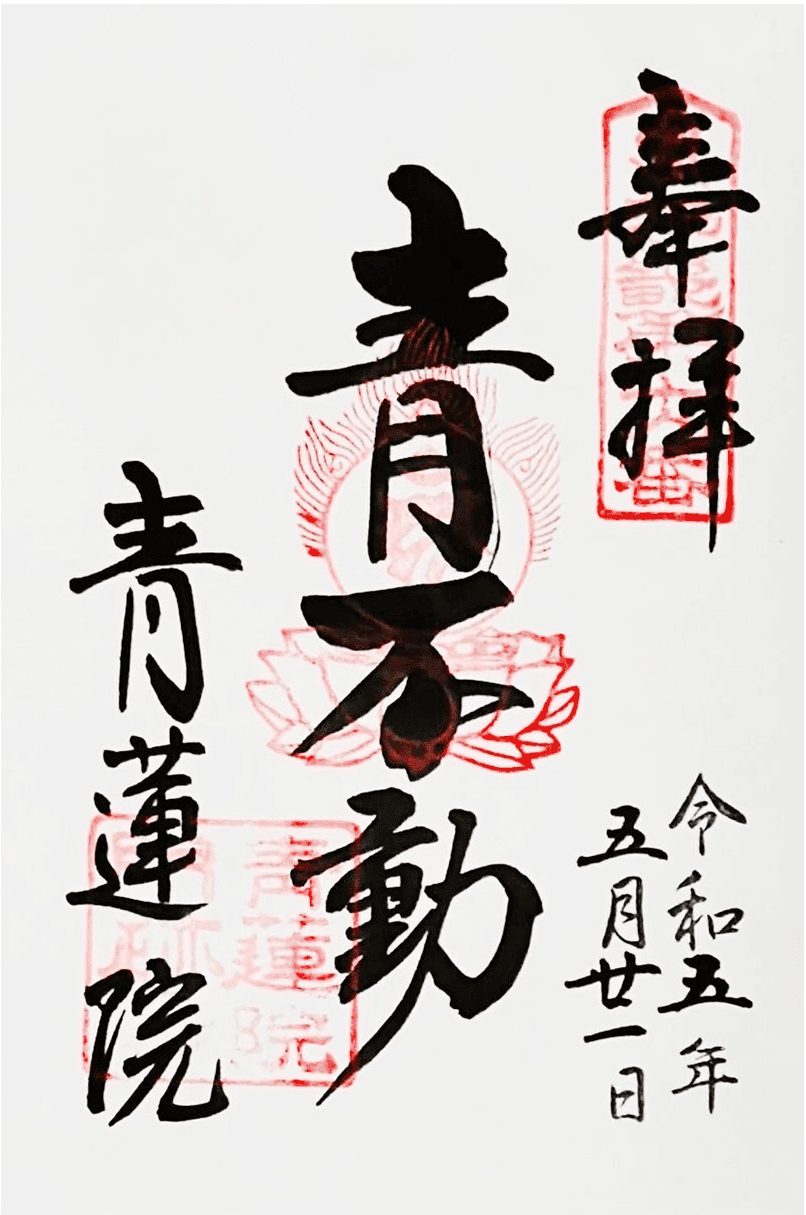 奉拝
令和五年
五月廿一日
青不動
青蓮院
青蓮院